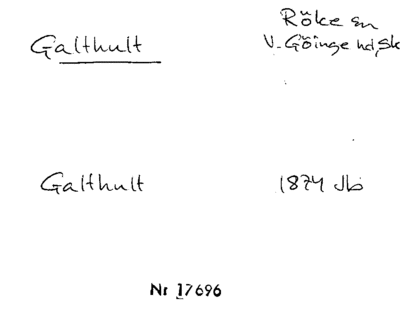 Röke sn
Galthult V. Göinge hd, Sk
Galthult 1874 Jb
Nr 17696